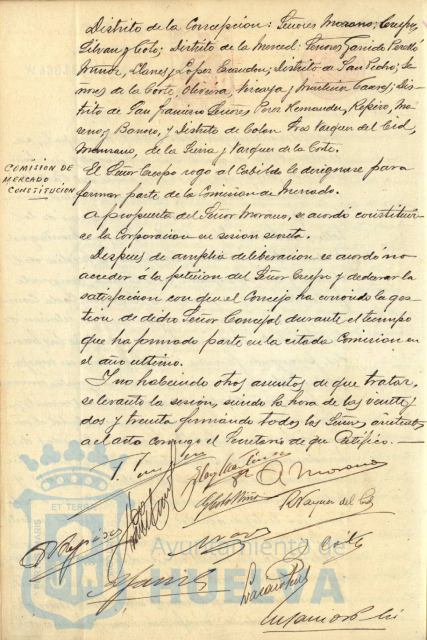 Distrito de la Concepcion: Señores Morano, Crespo,
Silvan y Coto; Distrito de la Merced: Señores Garrido Perelló
Muñoz, Llanes y Lopez; Distrito de San Pedro; Se-
ñores de la Corte, Oliveira, Vizcaya y; Dis-
trito de San Francisco Señores Perez Hernandez, Mo-
reno y Banero, y Distrito de Colon Sres Vazquez del Cid,
de la Feria y Vazquez de la Corte.
COMISION DE
MERCADO
CONSTITUCION
El Señor Crespo rogo al Cabildo le designase para
formar parte de la Comision de Mercado.
A propuesta del Señor Morano, se acordó constituir-
se la Corporacion en sesion secreta.
Despues de amplia deliberacion se acordó no
acceder á la peticion del Señor Crespo y declarar la
satisfaccion con que el Concejo ha conocido la ges-
tion de dicho Señor Concejal durante el tiempo
que ha formado parte en la citada Comision en
el año ultimo.
Y no habiendo otros asuntos de que tratar,
se levantó la sesion, siendo la hora de las veinte y
dos y treinta firmando todos los Señores asistentes
el acta conmigo el Secretario de que Certifico.
A. Morano
R. Vazquez del Cid
ET TERRÆ
Ayuntamiento de
HUELVA